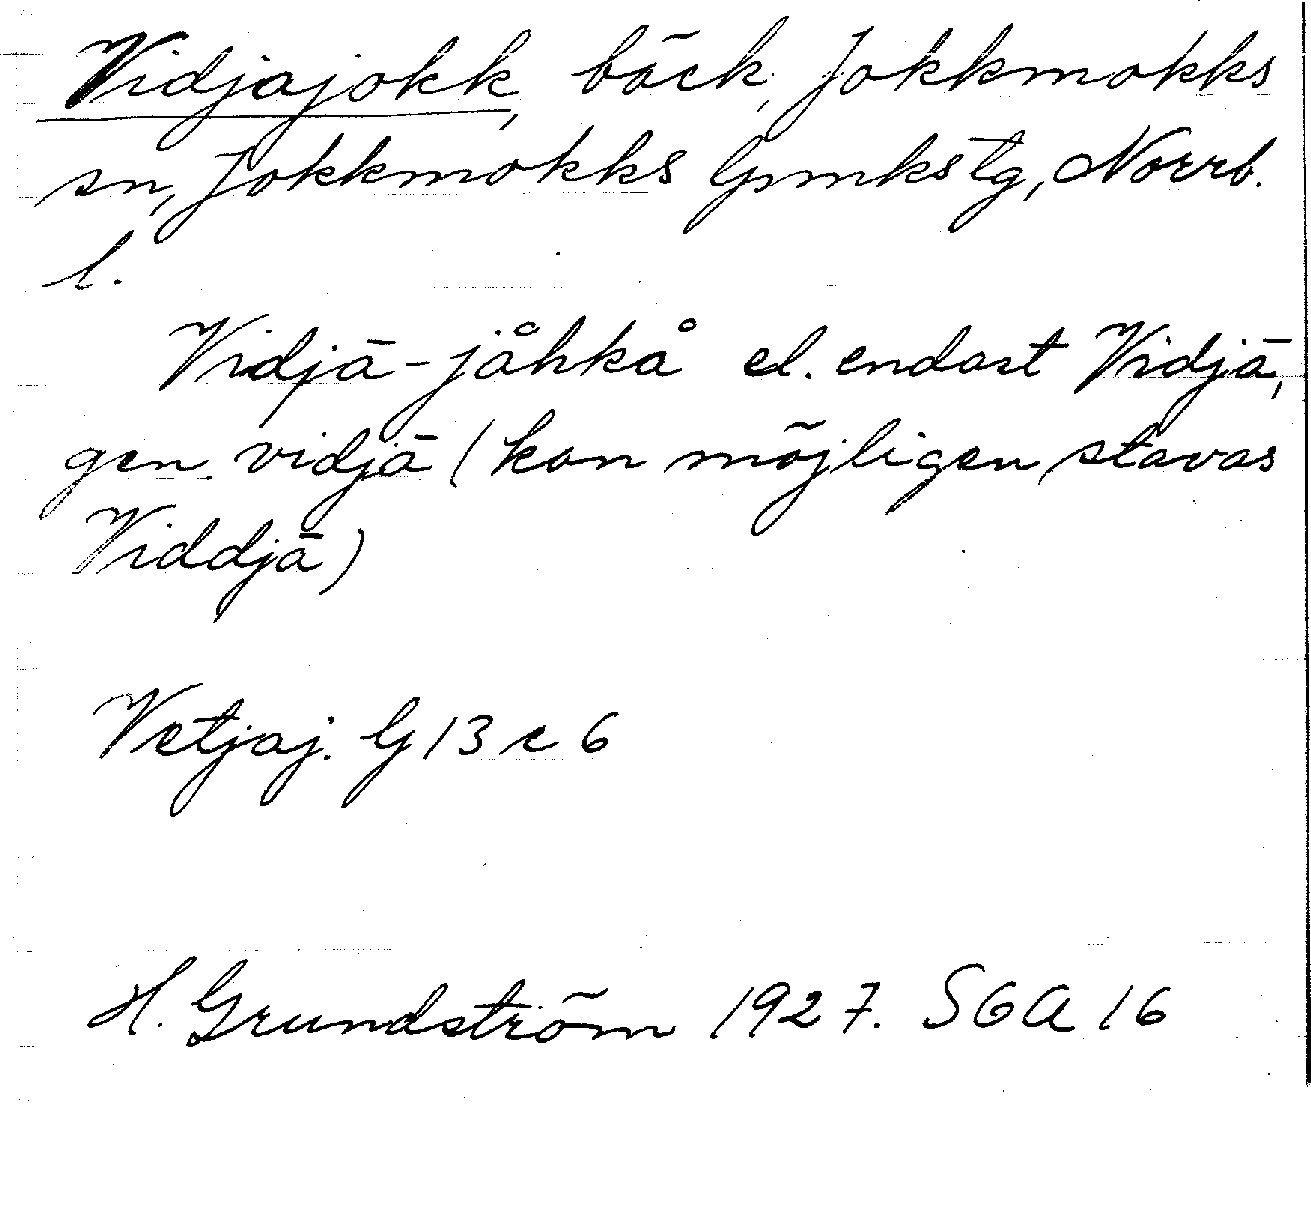 Vidjajokk, bäck, Jokkmokks
sn, Jokkmokks lpmkstg, Norrb.
l.
Vidjā-jåhkå el. endast Vidjā,
gen. vidjā (kan möjligen stavas
Viddjā)
Vetjaj. G 13 c 6
H. Grundström 1927. SGA 16